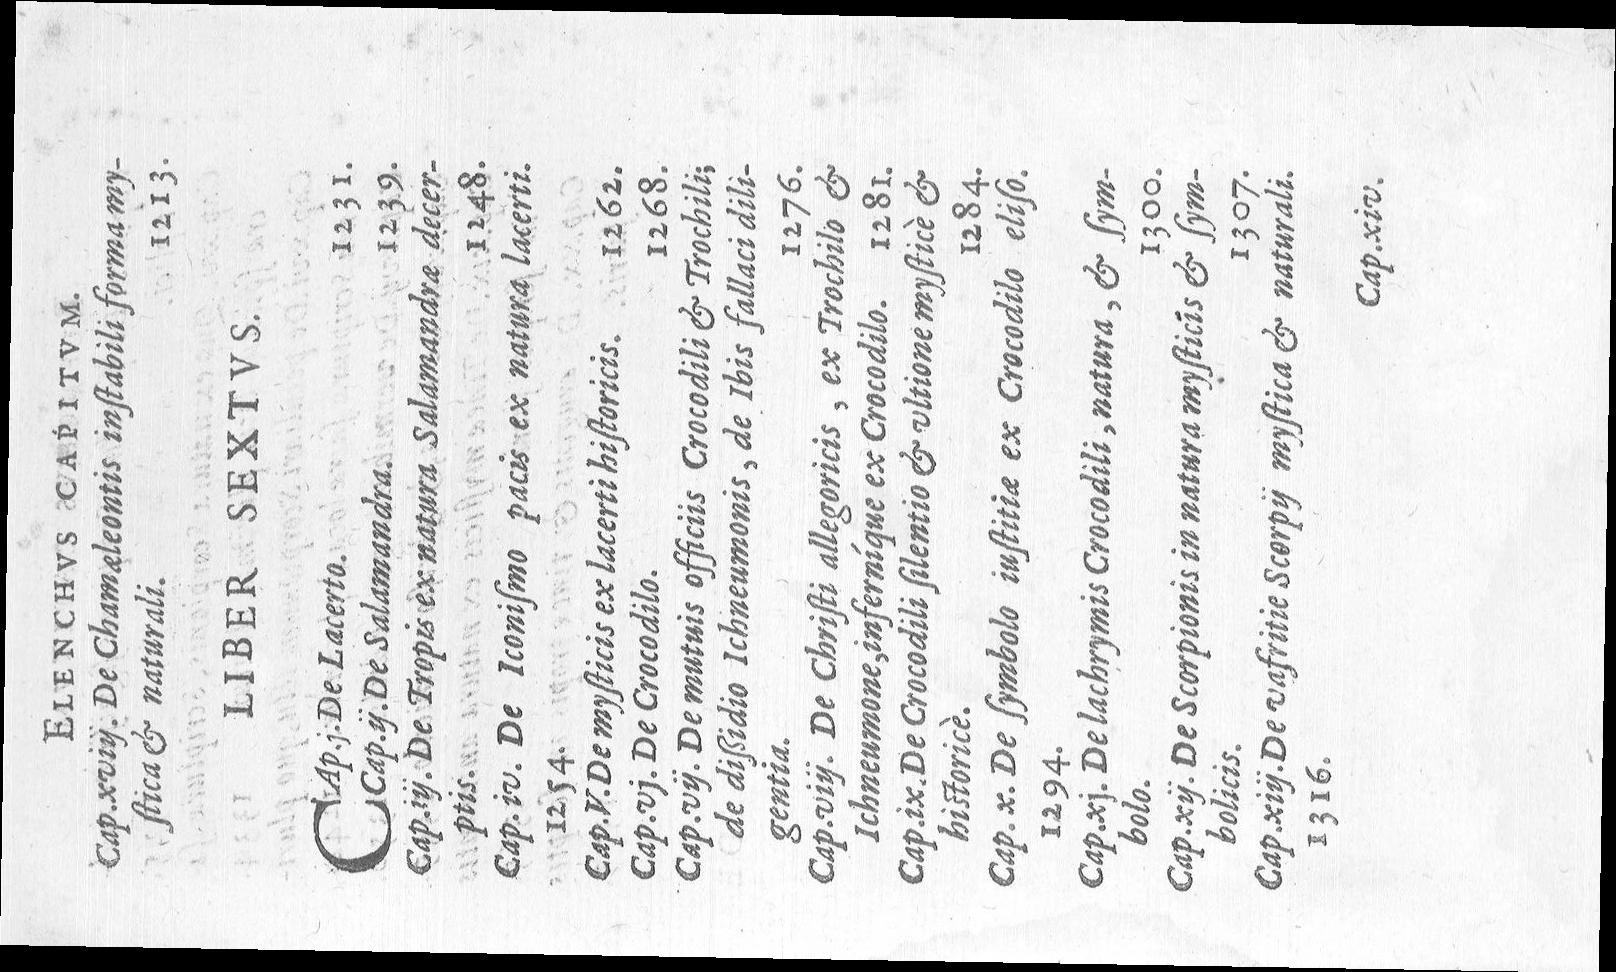 ELENCHVS CAPITVM.
Cap. xviij. De Chamæleontis inſtabili forma my-
ſtica & naturali. 1213.
LIBER SEXTVS.
CAp. j. De Lacerto. 1231.
Cap. ij. De Salamandra. 1239.
Cap. iij. De Tropis ex natura Salamandræ decer-
ptis. 1248.
Cap. iv. De Iconiſmo pacis ex natura lacerti.
1254.
Cap. V. De myſticis ex lacerti hiſtoricis. 1262.
Cap. vj. De Crocodilo. 1268.
Cap. vij. De mutuis officiis Crocodili & Trochili;
de diſsidio Ichneumonis, de Ibis fallaci dili-
gentia. 1276.
Cap. viij. De Chriſti allegoricis, ex Trochilo &
Ichneumone, inferníque ex Crocodilo. 1281.
Cap. ix. De Crocodili ſilentio & vltione myſticè &
hiſtoricè. 1284.
Cap. x. De ſymbolo iuſtitiæ ex Crocodilo eliſo.
1294.
Cap. xj. De lachrymis Crocodili, natura, & ſym-
bolo. 1300.
Cap. xij. De Scorpionis in natura myſticis & ſym-
bolicis. 1307.
Cap. xiij. De vafritie Scorpij myſtica & naturali.
1316.
Cap. xiv.